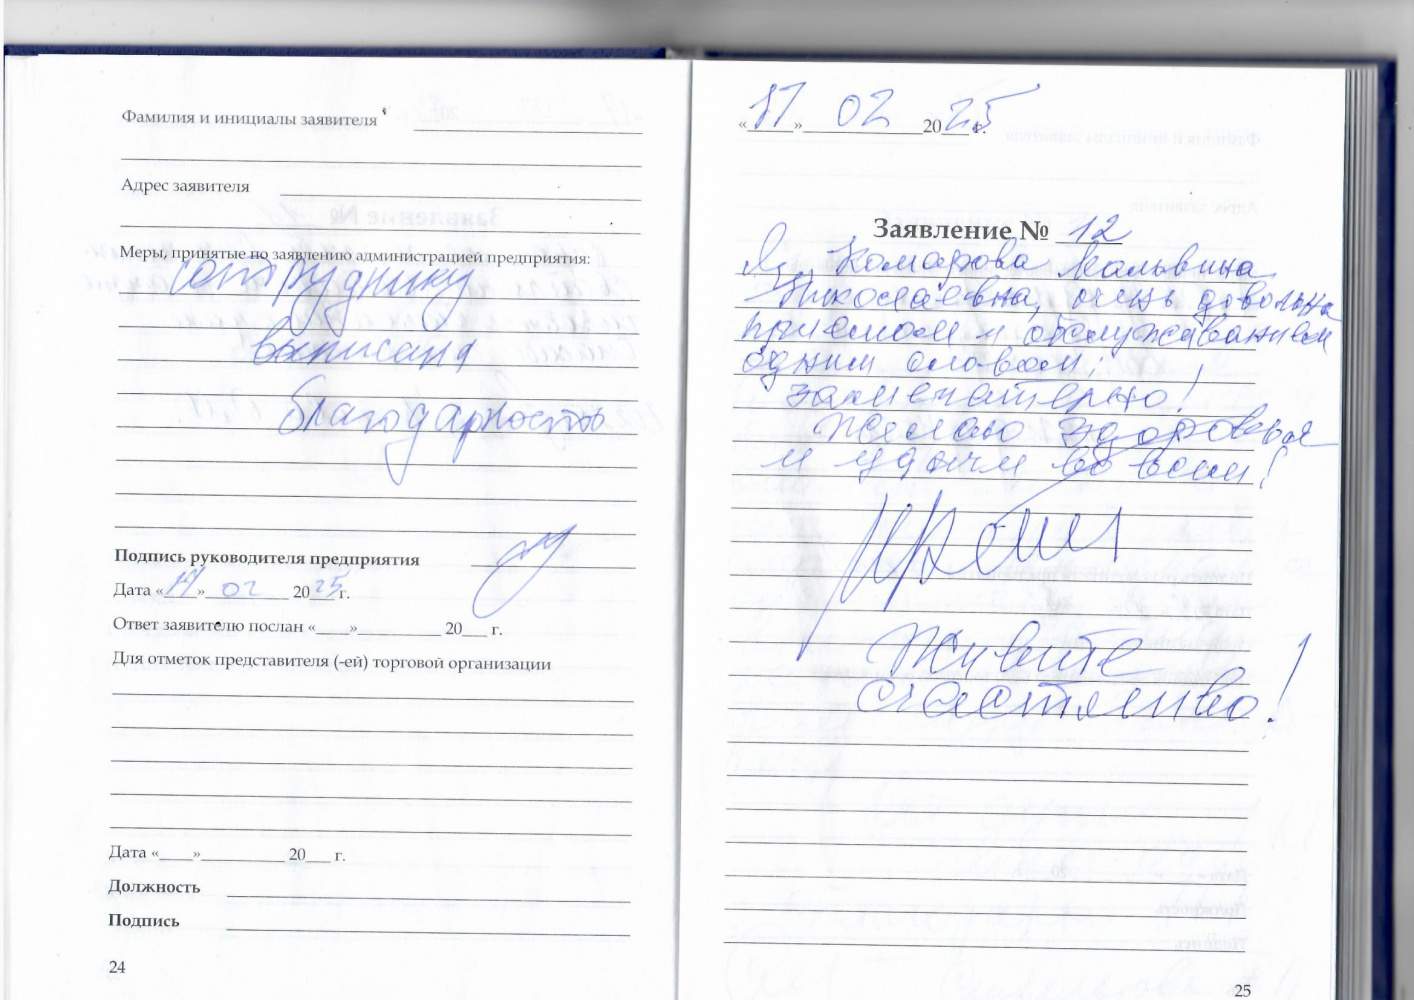 Фамилия и инициалы заявителя
Адрес заявителя
Меры, принятые по заявлению администрацией предприятия:
сотруднику
выписана
благодарность
Подпись руководителя предприятия
Дата «17» 02 2025 г.
Ответ заявителю послан «____»__________ 20___ г.
Для отметок представителя (-ей) торговой организации
Дата «____»__________ 20___ г.
Должность
Подпись
24
«17» 02 2025 г.
Заявление № 12
Я, Комарова Мальвина
Николаевна, очень довольна
приемом и обслуживанием
одним словом:
замечательно!
Желаю здоровья
и удачи во всем!
Живите
счастливо!
25